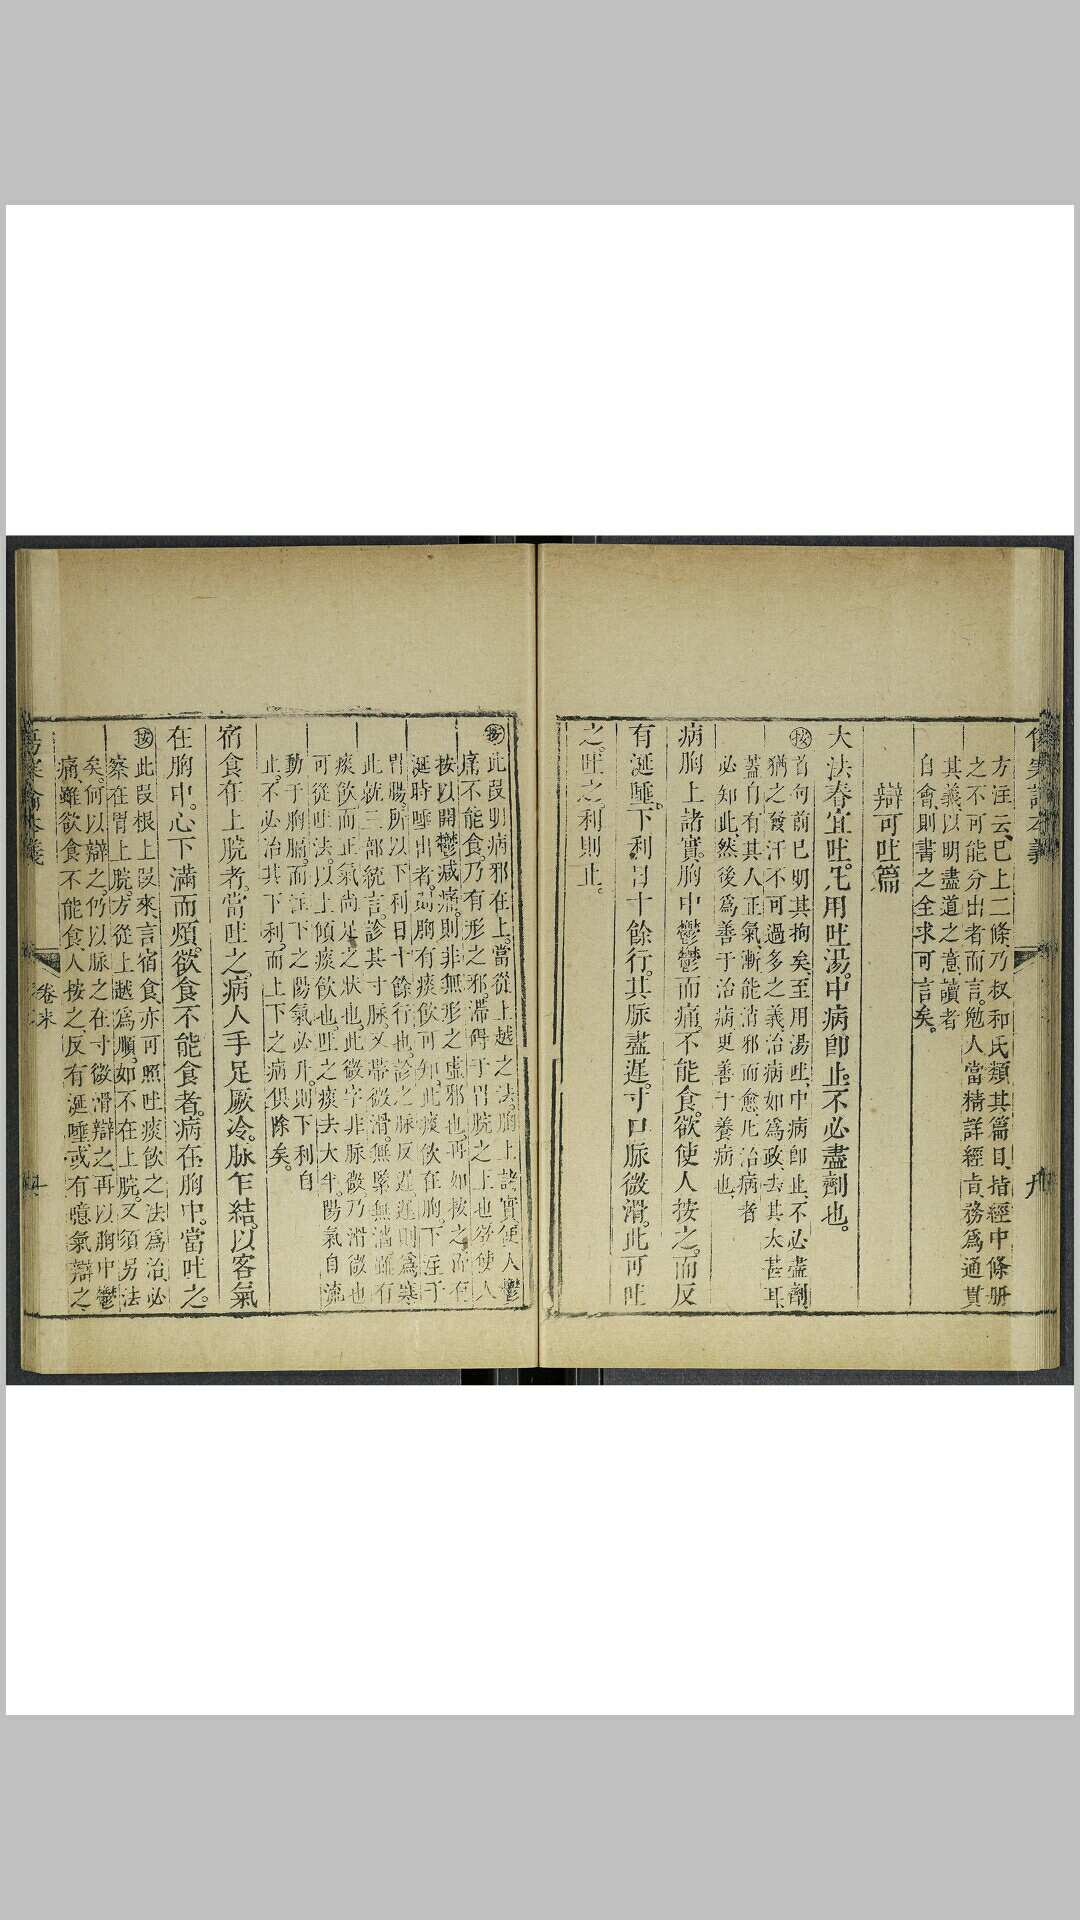 方注云、已上二條、乃叔和氏類其篇目、指經中條冊
之不可能分出者而言。勉人當精詳經旨、務爲通貫
其義、以明盡道之意、讀者
自會、則書之全求可言矣。
辯可吐篇
大法、春宜吐。凡用吐湯、中病卽止、不必盡劑也。
按首句前已明其拘矣。至用湯吐、中病卽止、不必盡劑
猶之發汗不可過多之義、治病如爲政、去其太甚耳
蓋自有其人正氣、漸能消邪而愈、凡治病者
必知此、然後爲善于治病、更善于養病也
病胸上諸實、胸中鬱鬱而痛、不能食、欲使人按之、而反
有涎唾、下利日十餘行、其脈盡遲、寸口脈微滑、此可吐
之。吐之、利則止。
按此段明病邪在上、當從上越之法。胸上諸實、使人鬱
痛不能食、乃有形之邪、滯碍于胃脘之上也、欲使人
按以開鬱減痛、則非無形之虛邪也。再如按之而有
涎時唾出者、則胸有痰飲可知、此痰飲在胸、下注于
胃腸、所以下利日十餘行也。診之脈反遲、遲則爲寒
此就三部統言。診其寸脈、又帶微滑、無緊無濇、雖有
痰飲而正氣尚足之狀也。此微字非脈微、乃滑微也
可從吐法、以上傾痰飲也。吐之痰去大半、陽氣自流
動于胸膈、而注下之陽氣必升、則下利自
止、不必治其下利、而上下之病俱除矣。
宿食在上脘者、當吐之。病人手足厥冷、脈乍結、以客氣
在胸中、心下滿而煩、欲食不能食者、病在胸中、當吐之。
按此段根上段來、言宿食亦可照吐痰飲之法爲治、必
察在胃上脘、方從上越爲順、如不在上脘、又須另法
矣。何以辯之、仍以脈之在寸微滑辯之。再以胸中鬱
痛、雖欲食不能食、人按之、反有涎唾、或有噫氣辯之
卷末